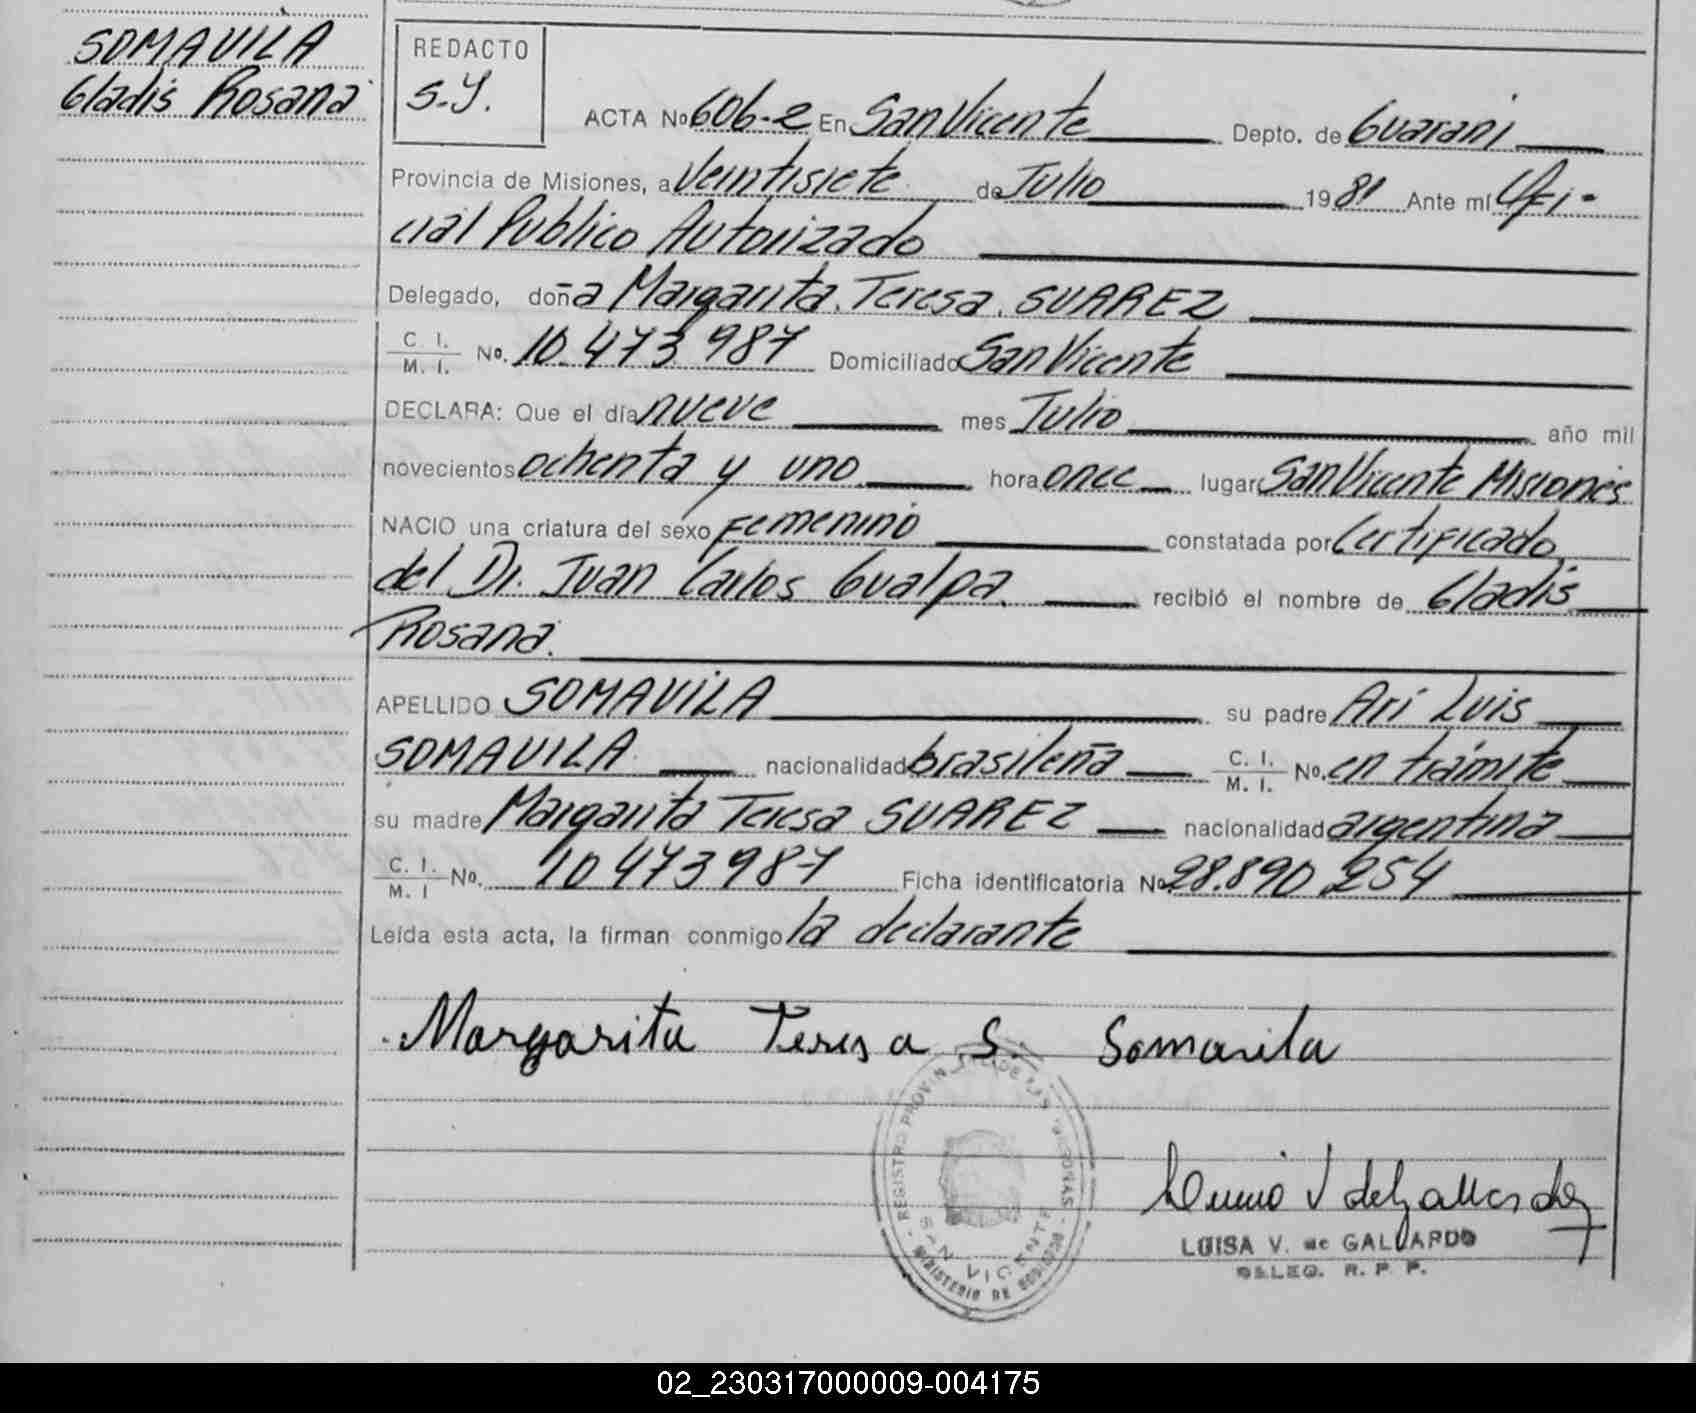 SOMAVILA
Gladis Rosana
REDACTO
S.Y.
ACTA No 606-2 En San Vicente Depto. de Guarani
Provincia de Misiones, a Veintisiete de Julio 1981 Ante mí Ofi-
cial Publico Autorizado
Delegado, doña Margarita Teresa SUAREZ
C. I.
M. I. No. 10.473.987 Domiciliado San Vicente
DECLARA: Que el día nueve mes Julio año mil
novecientos ochenta y uno hora once lugar San Vicente Misiones
NACIO una criatura del sexo Femenino constatada por Certificado
del Dr. Juan Carlos Gualpa. recibió el nombre de Gladis
Rosana.
APELLIDO SOMAVILA su padre Arí Luis
SOMAVILA nacionalidad brasileña C. I.
M. I. No. en trámite
su madre Margarita Teresa SUAREZ nacionalidad argentina
C. I.
M. I No. 10 473 987 Ficha identificatoria No 28.890.254
Leída esta acta, la firman conmigo la declarante
Margarita Teresa S. Somavila
REGISTRO PROVIN DE LAS PERSONAS
SAN VICENTE
MINISTERIO DE GOBIERNO
LUISA V. de GALLARDO
DELEG. R. P. P.
02_230317000009-004175